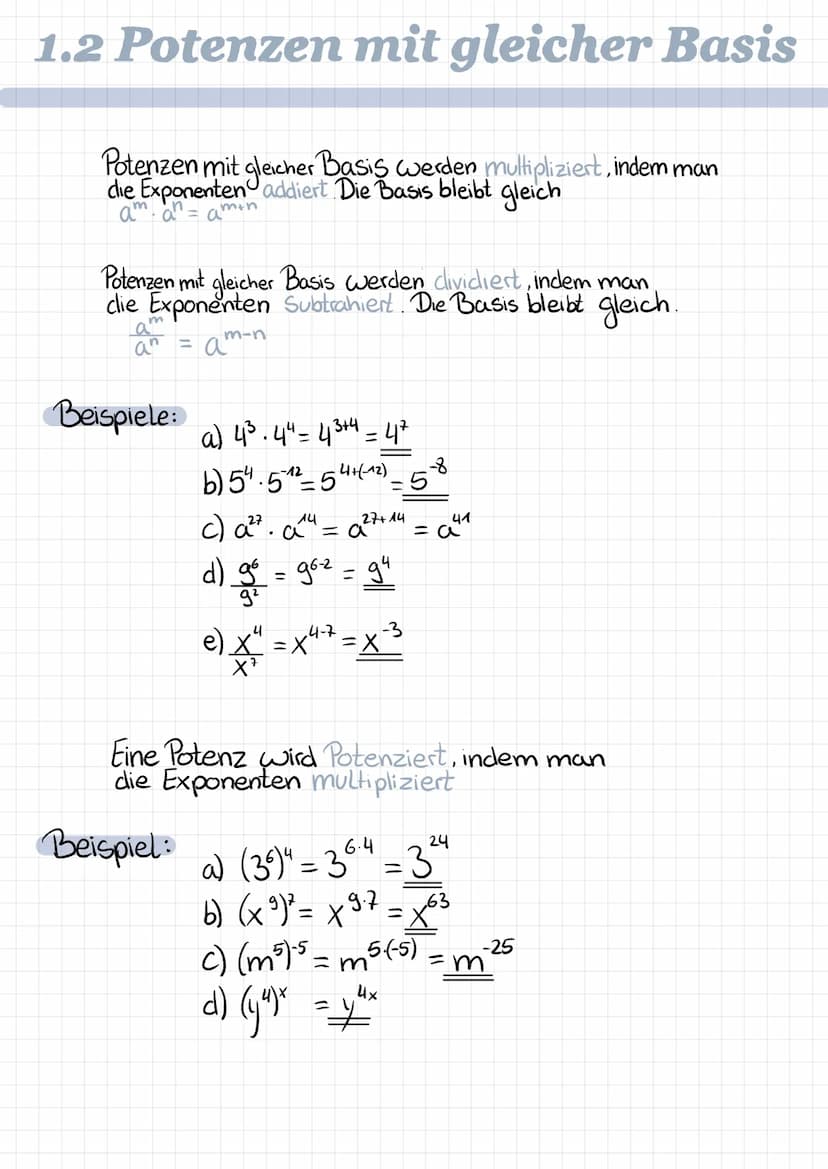 1.2 Potenzen mit gleicher Basis
Potenzen mit gleicher Basis werden multipliziert, indem man
die Exponenten addiert. Die Basis bleibt gleich
aᵐ · aⁿ = aᵐ⁺ⁿ
Potenzen mit gleicher Basis werden dividiert, indem man
die Exponenten Subtrahiert. Die Basis bleibt gleich.
aᵐ/aⁿ = aᵐ⁻ⁿ
Beispiele:
a) 4³ · 4⁴ = 4³⁺⁴ = 4⁷
b) 5⁴ · 5⁻¹² = 5⁴⁺⁽⁻¹²⁾ = 5⁻⁸
c) a²⁷ · a¹⁴ = a²⁷⁺¹⁴ = a⁴¹
d) g⁶/g² = g⁶⁻² = g⁴
e) x⁴/x⁷ = x⁴⁻⁷ = x⁻³
Eine Potenz wird Potenziert, indem man
die Exponenten multipliziert
Beispiel:
a) (3⁶)⁴ = 3⁶·⁴ = 3²⁴
b) (x⁹)⁷ = x⁹·⁷ = x⁶³
c) (m⁵)⁻⁵ = m⁵·⁽⁻⁵⁾ = m⁻²⁵
d) (y⁴)ˣ = y⁴ˣ